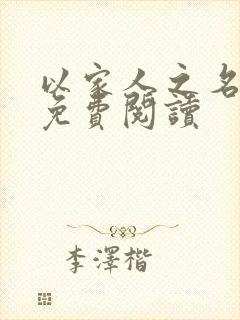 以家人之名
免費閱讀
李澤楷